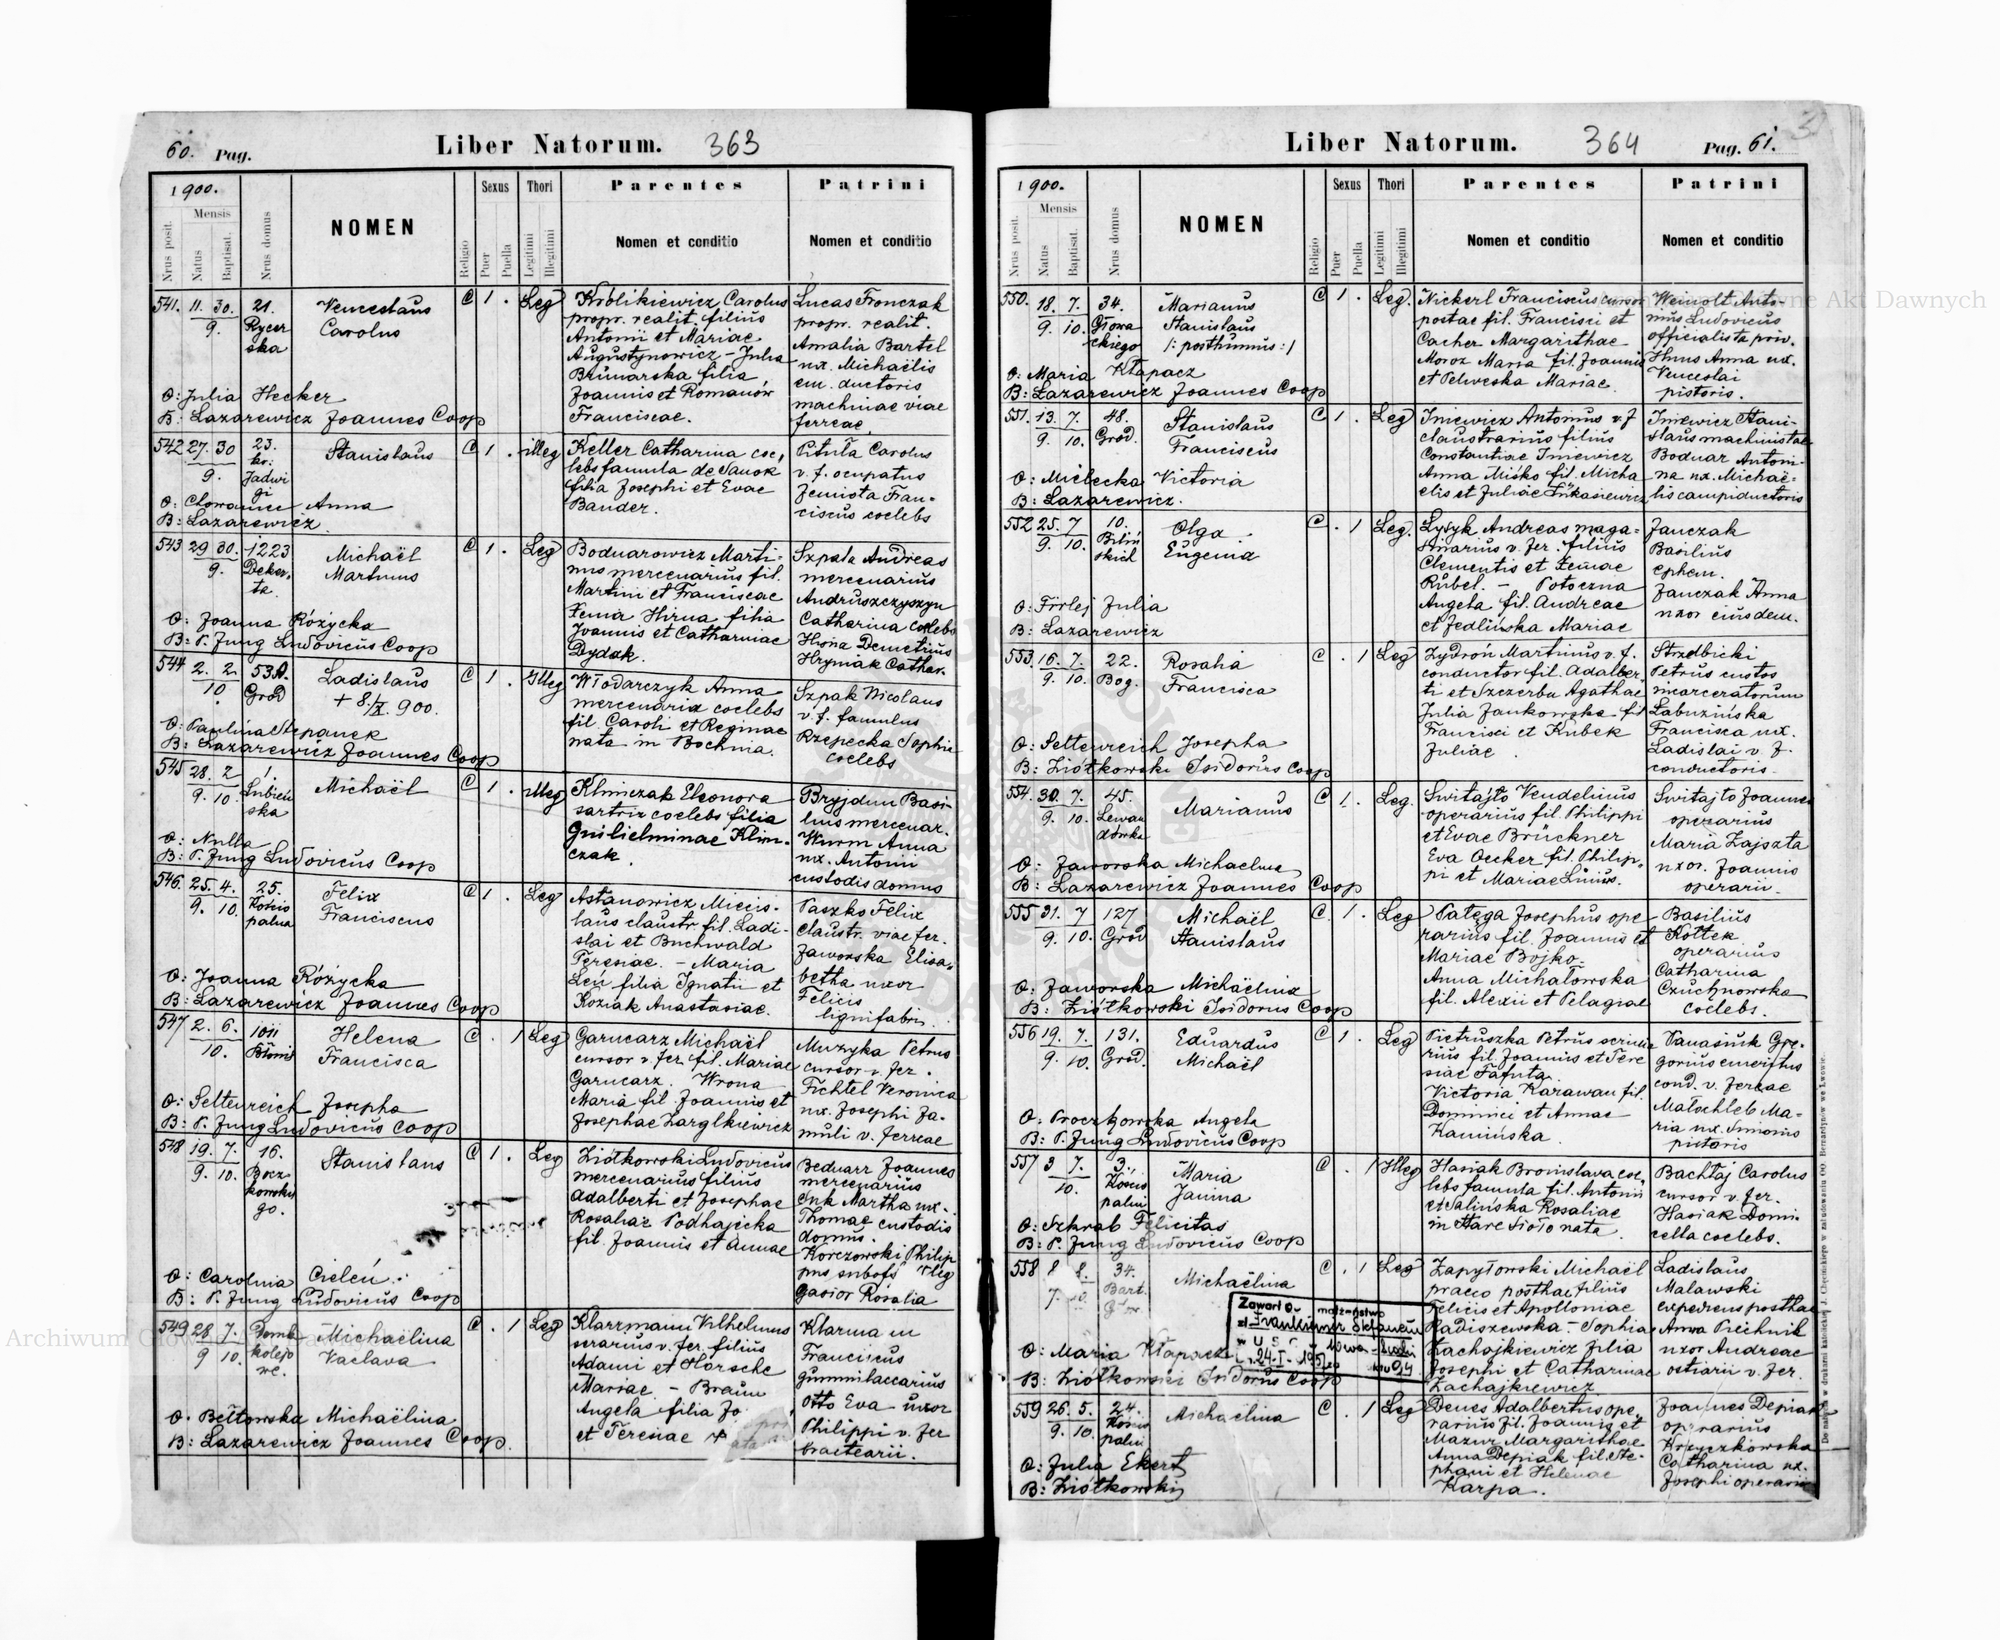 60. Pag.
Liber Natorum. 363
1900.
Mensis
Nrus posit.
Natus
Baptisat.
Nrus domus
NOMEN
Religio
Sexus
Puer
Puella
Thori
Legitimi
Illegitimi
Parentes
Nomen et conditio
Patrini
Nomen et conditio
541. 11. 30. 9.
21. Rycer
ska
Venceslaus
Carolus
C 1 . Leg
Królikiewicz Carolus
propr. realit. filius
Antonii et Mariae
Augustynowicz - Julia
Brunarska filia
Joannis et Romanów
Franciscae.
Lucas Fronczak
propr. realit.
Amalia Bartel
ux. Michaëlis
em. ductoris
machinae viae
ferreae
O: Julia Hecker
B: Lazarewicz Joannes Coop
542 27. 30 9.
23.
kr.
Jadwi
gi
Stanislaus
C 1 . illeg
Keller Catharina coe,
lebs famula de Sanok
filia Josephi et Evae
Bander.
Pitula Carolus
v. f. ocupatus
Zemista Fran-
ciscus coelebs
O: Anna
B: Lazarewicz.
543 29 30. 9.
1223
Deker,
ta.
Michaël
Martinus
C 1 . Leg
Bodnarowicz Marti-
nus mercenarius fil.
Martini et Franciscae
Xenia Hirna filia
Joannis et Catharinae
Dydak.
Szpala Andreas
mercenarius
Andruszczyszyn
Catharina coelebs
Hirna Demetrius
Hryniak Cathar.
O: Joanna Różycka
B: P. Jung Ludovicus Coop
544 2. 2. 10
53A.
Gród
Ladislaus
+ 8/X. 900.
C 1 . Illeg
Włodarczyk Anna
mercenaria coelebs
fil. Caroli et Reginae
nata in Bochnia.
Szpak Nicolaus
v. f. famulus
Rzepecka Sophia
coelebs
O: Paulina Stepanek
B: Lazarewicz Joannes Coop
545 28. 2 9. 10.
1.
Łubień
ska
Michaël
C 1 . illeg
Klimczak Eleonora
sartrix coelebs filia
Guilielminae Klim-
czak.
Bryjdun Basi-
lius mercenar.
Wurm Anna
ux. Antonii
custodis domus
O: Nulla
B: P. Jung Ludovicus Coop
546. 25. 4. 9. 10.
25.
Kościo
palna
Felix
Franciscus
C 1 . Leg
Astanowicz Miecis-
laus claustr. fil. Ladi-
slai et Buchwald
Teresiae. - Maria
Leń filia Ignatii et
Koziak Anastasiae.
Paszko Felix
Claustr. viae fer.
Jaworska Elisa,
betha uxor
Felicis
lignifabri.
O: Joanna Różycka
B: Lazarewicz Joannes Coop
547 2. 6. 10.
1011
Błonie
Helena
Francisca
C . 1 Leg
Garncarz Michaël
cursor v. fer. fil. Mariae
Garncarz. Wrona
Maria fil. Joannis et
Josephae Zarglkiewicz
Muzyka Petrus
cursor v. fer.
Fichtel Veronica
ux. Josephi fa-
muli v. ferreae
O: Seltenreich Josepha
B: P. Jung Ludovicus Coop
548 19. 7. 9. 10.
16.
Bocz
kowskie
go.
Stanislaus
C 1 . Leg
Ziółkowski Ludovicus
mercenarius filius
Adalberti et Josephae
Rosaliae Podhajecka
fil. Joannis et Annae
Bednarz Joannes
mercenarius
Suk Martha ux.
Thomae custodis
domus.
Korczowski Philip
pus subofs
Gasior Rosalia
O: Carolina Cieleń.
B: P. Jung Ludovicus Coop
549 28 7. 9 10.
Domk
kolejo
we.
Michaëlina
Vaclava
C . 1 Leg
Klarrmann Vilhelmus
serarius v. fer. filius
Adami et Hörsche
Mariae. - Braun
Angela filia Jo
et Teresiae
Klarman
Franciscus
gummilaccarius
Otto Eva uxor
Philippi v. fer
bractearii.
O. Bełtowska Michaëlina
B: Lazarewicz Joannes Coop.
Liber Natorum. 364
Pag. 61.
1900.
Mensis
Nrus posit.
Natus
Baptisat.
Nrus domus
NOMEN
Religio
Sexus
Puer
Puella
Thori
Legitimi
Illegitimi
Parentes
Nomen et conditio
Patrini
Nomen et conditio
550. 18. 7. 9. 10.
34.
Głowa
ckiego
Marianus
Stanislaus
/: posthumus :/
C 1 . Leg.
Nickerl Franciscus cursor
postae fil. Francisci et
Cacher Margarithae
Moroz Maria fil. Joannis
et Pelweska Mariae.
Weinolt Anto-
nius Ludovicus
officialista priv.
Hnus Anna ux.
Venceslai
pistoris.
O: Maria Kłapacz
B: Lazarewicz Joannes Coop
551. 13. 7. 9. 10.
48.
Gród.
Stanislaus
Franciscus
C 1 . Leg
Iniewicz Antonius v. f
claustrarius filius
Constantiae Iniewicz
Anna Miśko fil. Micha
elis et Juliae Łukasiewicz
Iniewicz Stani-
slaus machinista
Bodnar Antoni-
na ux. Michaë-
lis campiductoris
O: Mielecka Victoria
B: Lazarewicz.
552 25. 7 9. 10.
10.
Biliń
skich
Olga
Eugenia
C . 1 Leg.
Łysyk Andreas maga-
zinarius v. fer. filius
Clementis et Xeniae
Rubel. - Potoczna
Angela fil. Andreae
et Jedlińska Mariae
Janczak
Basilius
ephem.
Janczak Anna
uxor eiusdem.
O: Firlej Julia
B: Lazarewicz
553. 16. 7. 9. 10.
22.
Bog.
Rosalia
Francisca
C . 1 Leg
Zydroń Martinus v. f.
conductor fil. Adalber-
ti et Szczerba Agathae
Julia Jankowska fil
Francisci et Kubek
Juliae.
Strzelbicki
Petrus custos
incarceratorum
Łabuzińska
Francisca ux.
Ladislai v. f.
conductoris.
O: Seltenreich Josepha
B: Ziółkowski Isidorus Coop
554. 30. 7. 9. 10.
45.
Lewan
dówka
Marianus
C 1. Leg.
Switajło Vendelinus
operarius fil. Philippi
et Evae Brückner
Eva Oecker fil. Philip,
pi et Mariae Linius.
Switajło Joannes
operarius
Maria Zajszla
uxor. Joannis
operarii.
O: Jaworska Michaelina
B: Lazarewicz Joannes Coop
555 31. 7 9. 10.
127
Gród
Michaël
Stanislaus
C 1 . Leg
Patęga Josephus ope
rarius fil. Joannis et
Mariae Bojko.
Anna Michałowska
fil. Alexii et Pelagiae
Basilius
Kottek
operarius
Catharina
Czuchnowska
coelebs.
O: Jaworska Michaëlina
B: Ziółkowski Isidorus Coop
556 19. 7. 9. 10.
131.
Gród.
Eduardus
Michaël
C 1 . Leg
Pietruszka Petrus scrinia
rius fil. Joannis et Tere
siae Tafuta.
Victoria Karawan fil.
Dominici et Annae
Kamińska.
Panasiuk Gre-
gorius emeritus
cond. v. ferreae
Matschleb Ma-
ria ux. Simonis
pistoris
O: Proczkowska Angela
B: P. Jung Ludovicus Coop
557 3 7. 10.
3.
Kościo
palni
Maria
Janina
C . 1 Illeg
Hasiak Bronislava coe,
lebs famula fil. Antonii
et Salińska Rosaliae
in Stare Sioło nata.
Bachtaj Carolus
cursor v. fer.
Hasiak Domi-
cella coelebs.
O: Szkrab Felicitas
B: P. Jung Ludovicus Coop
558 8 8. 7. 10.
34.
Bart.
Głow
Michaëlina
C . 1 Leg
Zapyłowski Michaël
praeco posthae filius
Felicis et Apolloniae
Radiszewska - Sophia
Zachajkiewicz Julia
Josephi et Catharinae
Zachajkiewicz
Ladislaus
Malawski
expediens posthae
Anna Piechnik
uxor Andreae
ostiarii v. fer.
Zawarł a małżeństwo
O: Maria Kłapacz
B: Ziółkowski Isidorus Coop
559 26. 5. 9. 10.
24.
Kościo
palni
Michaëlina
C . 1 Leg
Denes Adalbertus ope,
rarius fil. Joannis et
Mazur Margarithae
Anna Depiak fil. Ste-
phani et Helenae
Karpa.
Joannes Depiak
operarius
Krzyczkowska
Catharina ux.
Josephi operarii
O: Julia Ekert
B: Ziółkowski
Archiwum Główne Akt Dawnych